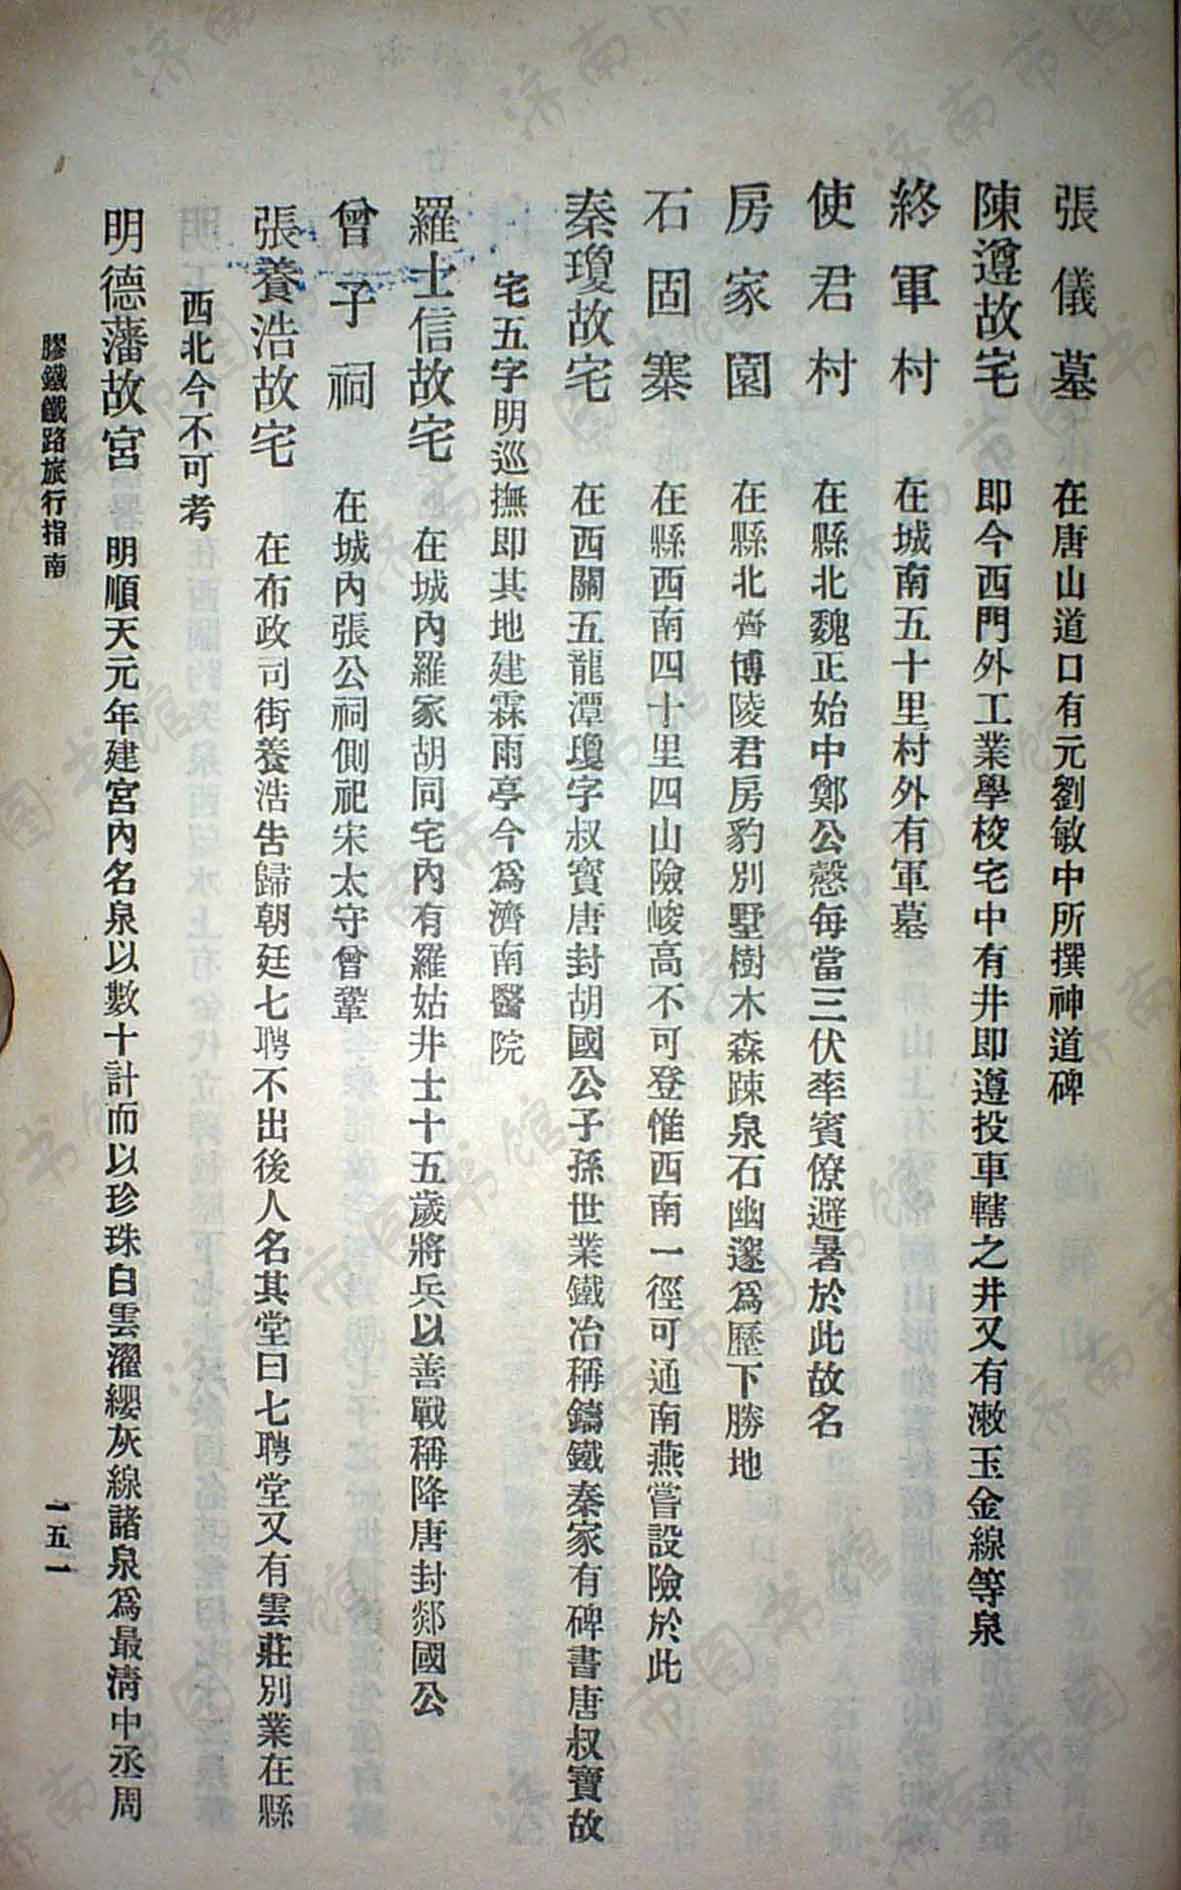 張儀墓　在唐山道口有元劉敏中所撰神道碑
陳遵故宅　即今西門外工業學校宅中有井即遵投車轄之井又有漱玉金線等泉
終軍村　在城南五十里村外有軍墓
使君村　在縣北魏正始中鄭公慤每當三伏率賓僚避暑於此故名
房家園　在縣北齊博陵君房豹別墅樹木森踈泉石幽邃爲歷下勝地
石固寨　在縣西南四十里四山險峻高不可登惟西南一徑可通南燕嘗設險於此
秦瓊故宅　在西關五龍潭瓊字叔寶唐封胡國公子孫世業鐵冶稱鑄鐵秦家有碑書唐叔寶故
宅五字明巡撫即其地建霖雨亭今爲濟南醫院
羅士信故宅　在城內羅家胡同宅內有羅姑井士十五歲將兵以善戰稱降唐封郯國公
曾子祠　在城內張公祠側祀宋太守曾鞏
張養浩故宅　在布政司街養浩告歸朝廷七聘不出後人名其堂曰七聘堂又有雲莊別業在縣
西北今不可考
明德藩故宮　明順天元年建宮內名泉以數十計而以珍珠白雲濯纓灰線諸泉爲最淸中丞周
膠鐵鐵路旅行指南
一五一
濟南市图书馆